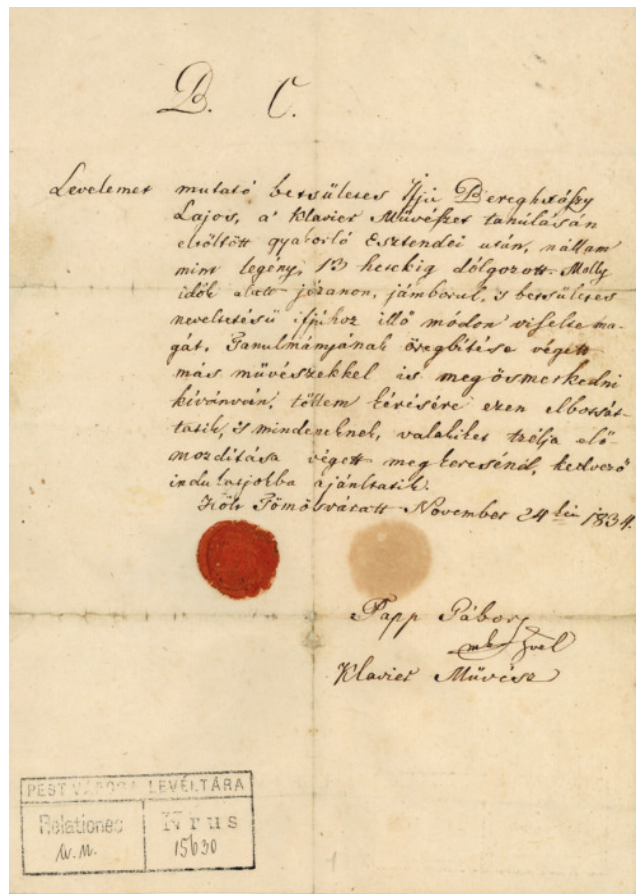 B. C.
Levelemet mutató betsületes Ifju Bereghszászy
Lajos, a' Klavier Müvészet tanúlásán
eltöltött gyakorló Esztendei után, nállam
mint legény, 13 hetekig dólgozott. Melly
idők alatt józanon, jámborul, 's betsületes
neveltetésü ifjúhoz illő módon viselte ma-
gát. Tanulmánjának öregbítése végett
más művészekkel is megösmerkedni
kívánván, tőllem kérésére ezen elbotsát-
tatik, 's mindeneknek, valakiket tzélja elő-
mozdítása végett megkeresénd, kedvező
indulatjokba ajánltatik.
Költ Tömösváratt November 24kén 1834.
Papp Gábor
mk
Klavier Müvész
PEST VÁROSA LEVÉLTÁRA
Relationes
a. m.
Nrus
15630